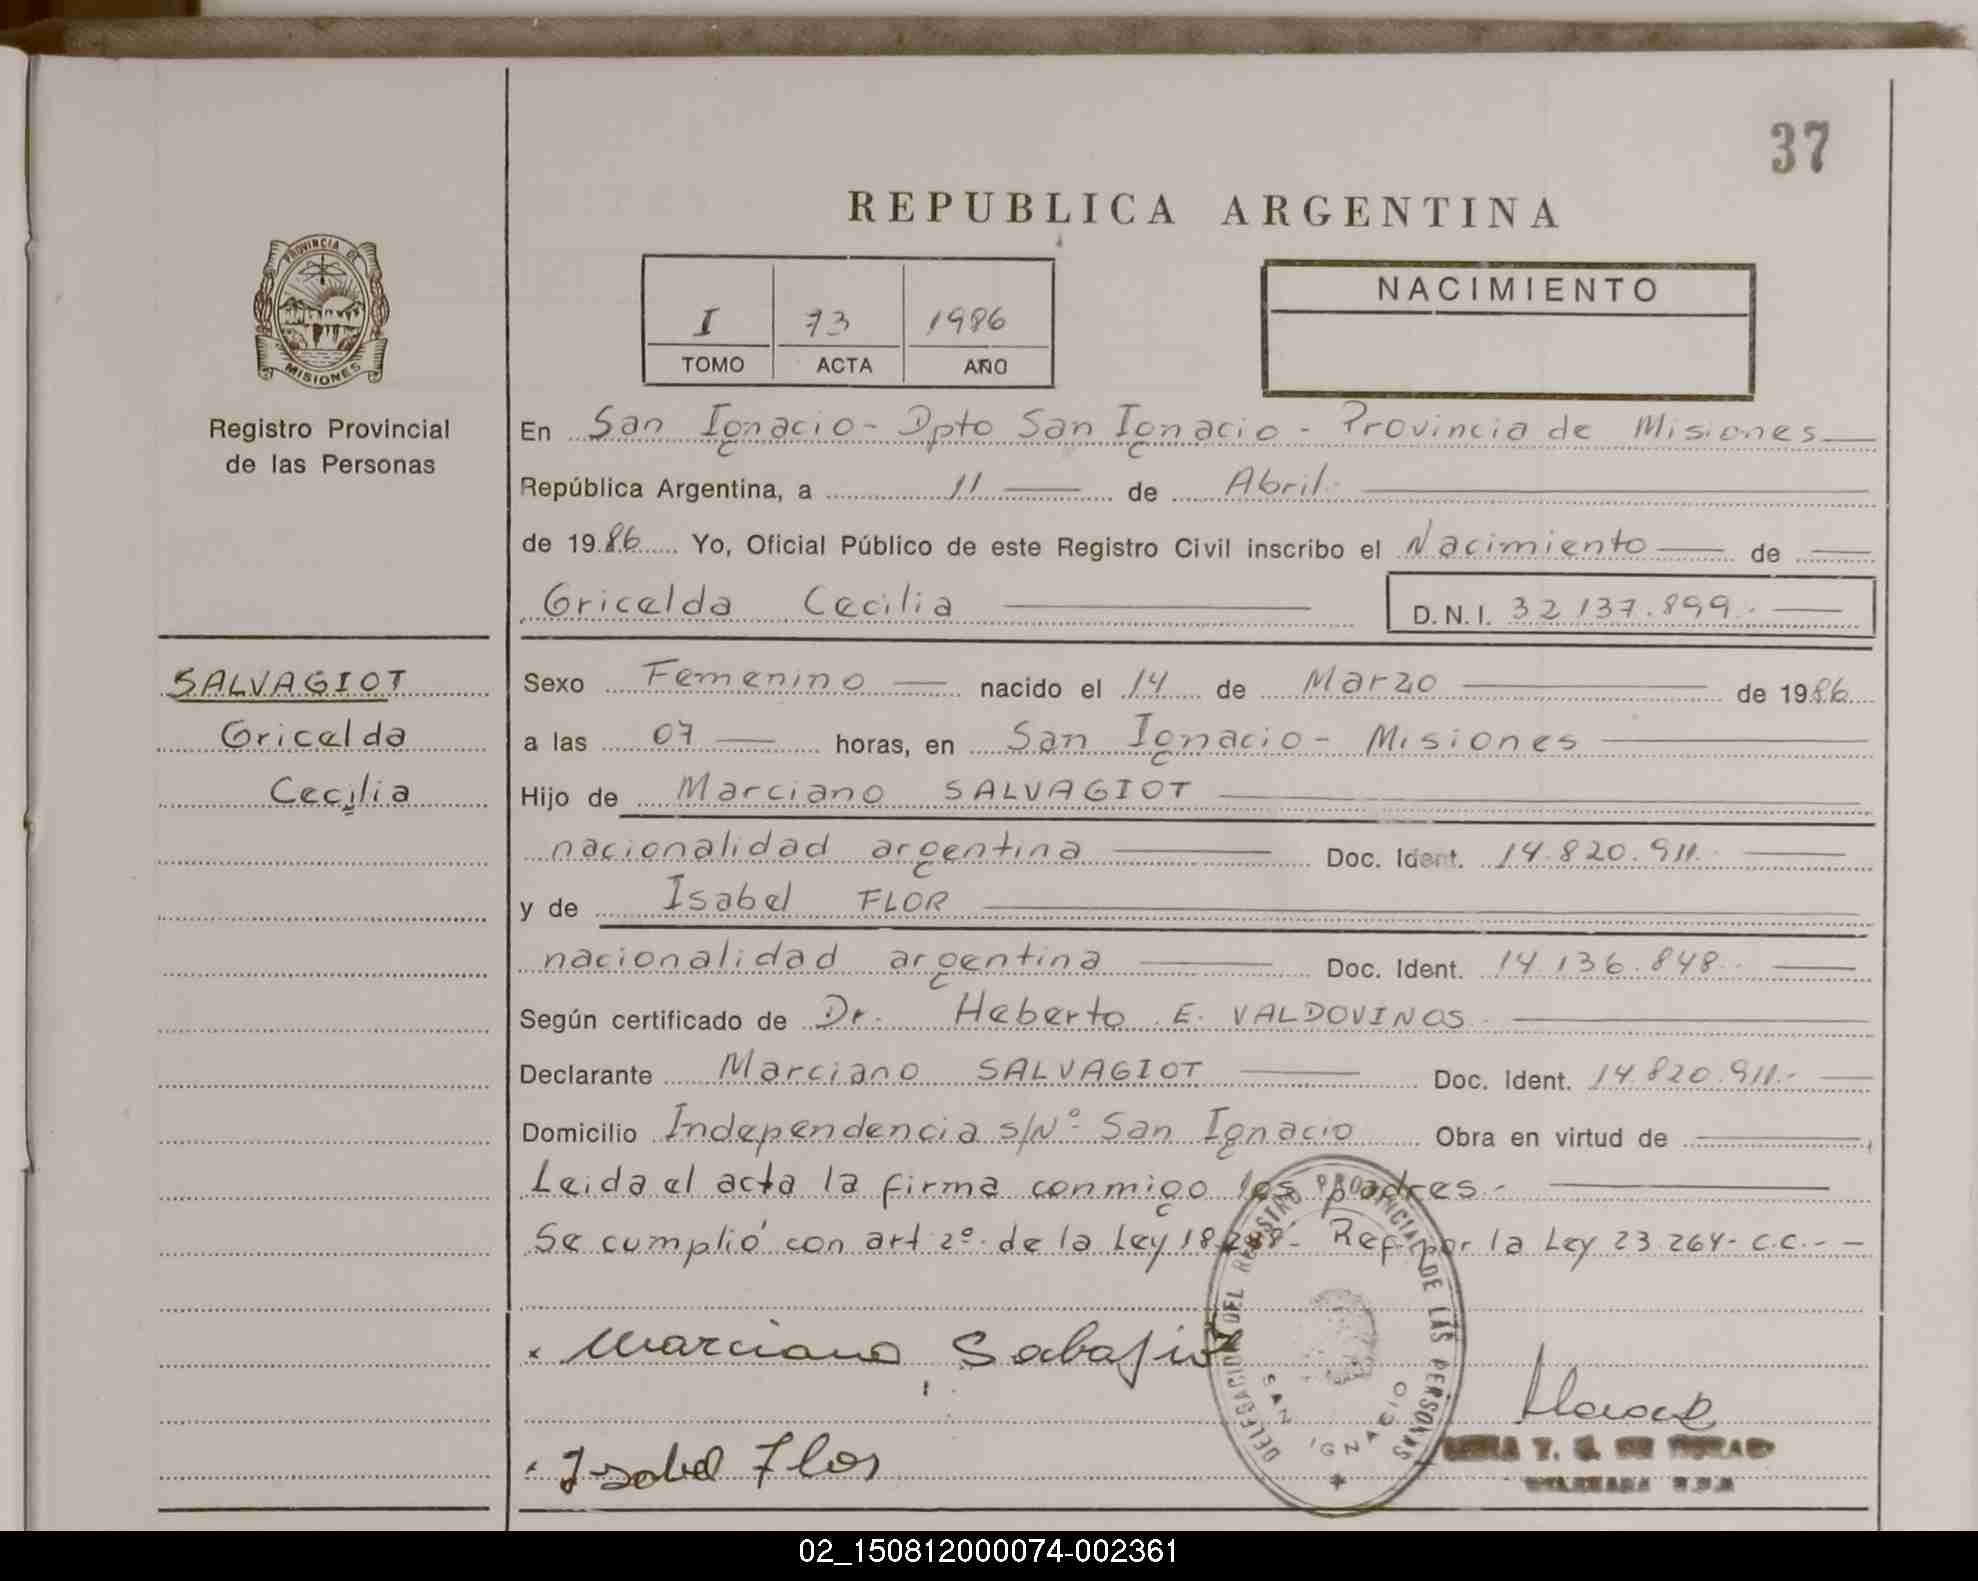 37
REPUBLICA ARGENTINA
PROVINCIA DE
MISIONES
Registro Provincial
de las Personas
I 73 1986
TOMO ACTA AÑO
NACIMIENTO
En San Ignacio - Dpto San Ignacio - Provincia de Misiones
República Argentina, a 11 de Abril
de 1986 Yo, Oficial Público de este Registro Civil inscribo el Nacimiento de
Gricelda Cecilia D.N.I. 32.137.899.-
SALVAGIOT
Gricelda
Cecilia
Sexo Femenino nacido el 14 de Marzo de 1986
a las 07 horas, en San Ignacio - Misiones
Hijo de Marciano SALVAGIOT
nacionalidad argentina Doc. Ident. 14.820.911.
y de Isabel FLOR
nacionalidad argentina Doc. Ident. 14.136.848.
Según certificado de Dr. Heberto E. VALDOVINOS
Declarante Marciano SALVAGIOT Doc. Ident. 14.820.911.-
Domicilio Independencia S/Nº- San Ignacio Obra en virtud de
Leida el acta la firma conmigo los padres.-
Se cumplió con art 2º. de la Ley 18.248- Ref. por la Ley 23.264- C.C.- -
Marciano
Isabel Flor
DELEGACION DEL REGISTRO PROVINCIAL DE LAS PERSONAS
SAN IGNACIO
02_150812000074-002361